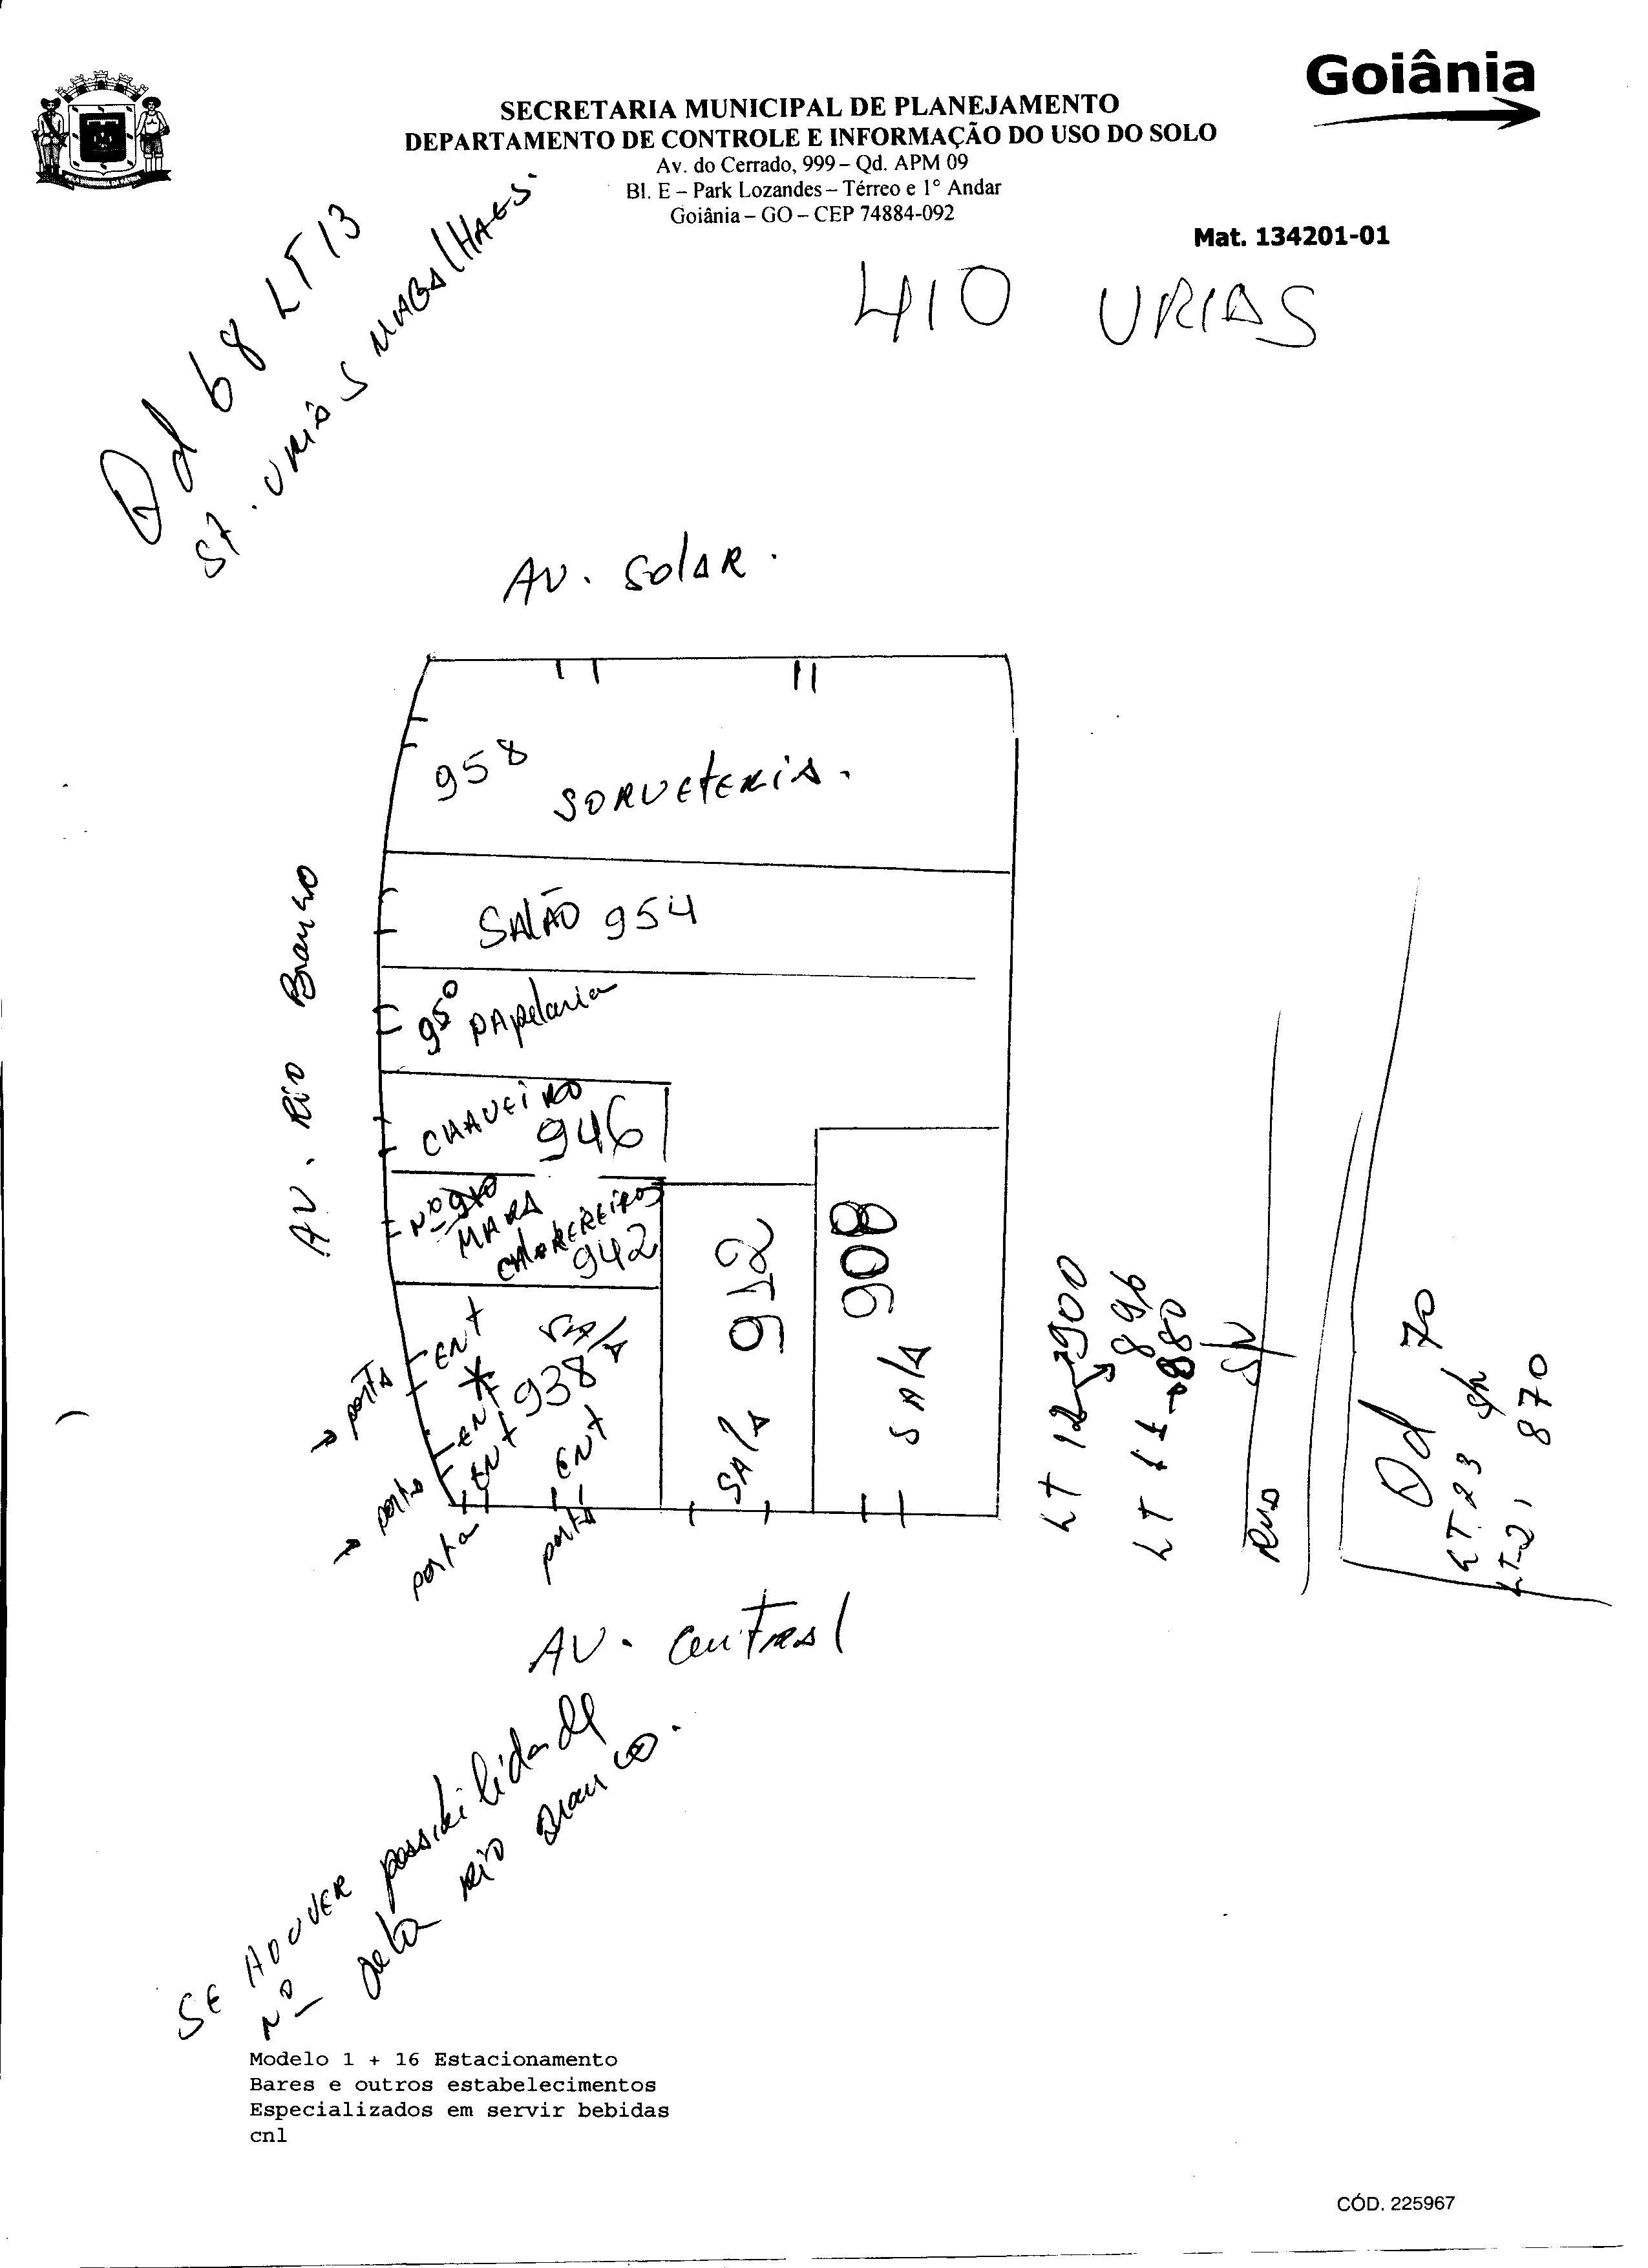 Goiânia
SECRETARIA MUNICIPAL DE PLANEJAMENTO
DEPARTAMENTO DE CONTROLE E INFORMAÇÃO DO USO DO SOLO
Av. do Cerrado, 999 – Qd. APM 09
Bl. E – Park Lozandes – Térreo e 1° Andar
Goiânia – GO – CEP 74884-092
Mat. 134201-01
410 URIAS
Qd 68 LT 13
ST. URIAS MAGALHAES.
AV. SOLAR.
958 SORVETERIA.
AV. RIO Branco
SALÃO 954
950 PApelaria
CHAVEIRO
946
Nº
MARA
942
ENT
SALA
938
ENT
ENT
ENT
→ porta
→ porta
porta
porta
SALA 912
SALA 908
LT 12 → 900
896
LT 11 → 880
S/N
RUA
Qd 70
LT 23 S/N
LT 21 870
AV. Central
SE HOUVER possibilidade
Nº pela RIO Branco.
Modelo 1 + 16 Estacionamento
Bares e outros estabelecimentos
Especializados em servir bebidas
cnl
CÓD. 225967